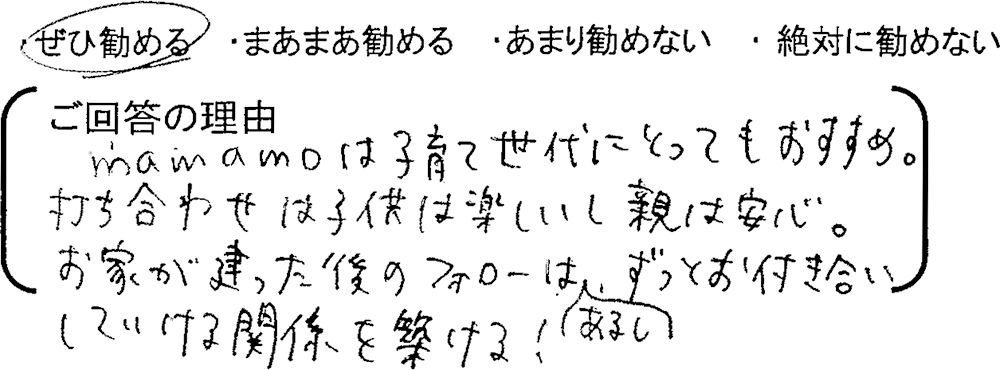 ・ぜひ勧める ・まあまあ勧める ・あまり勧めない ・絶対に勧めない
ご回答の理由
mamamoは子育て世代にとってもおすすめ。
打ち合わせは子供は楽しいし親は安心。
お家が建った後のフォローは、ずっとお付き合い
していける関係を築ける!
あるし